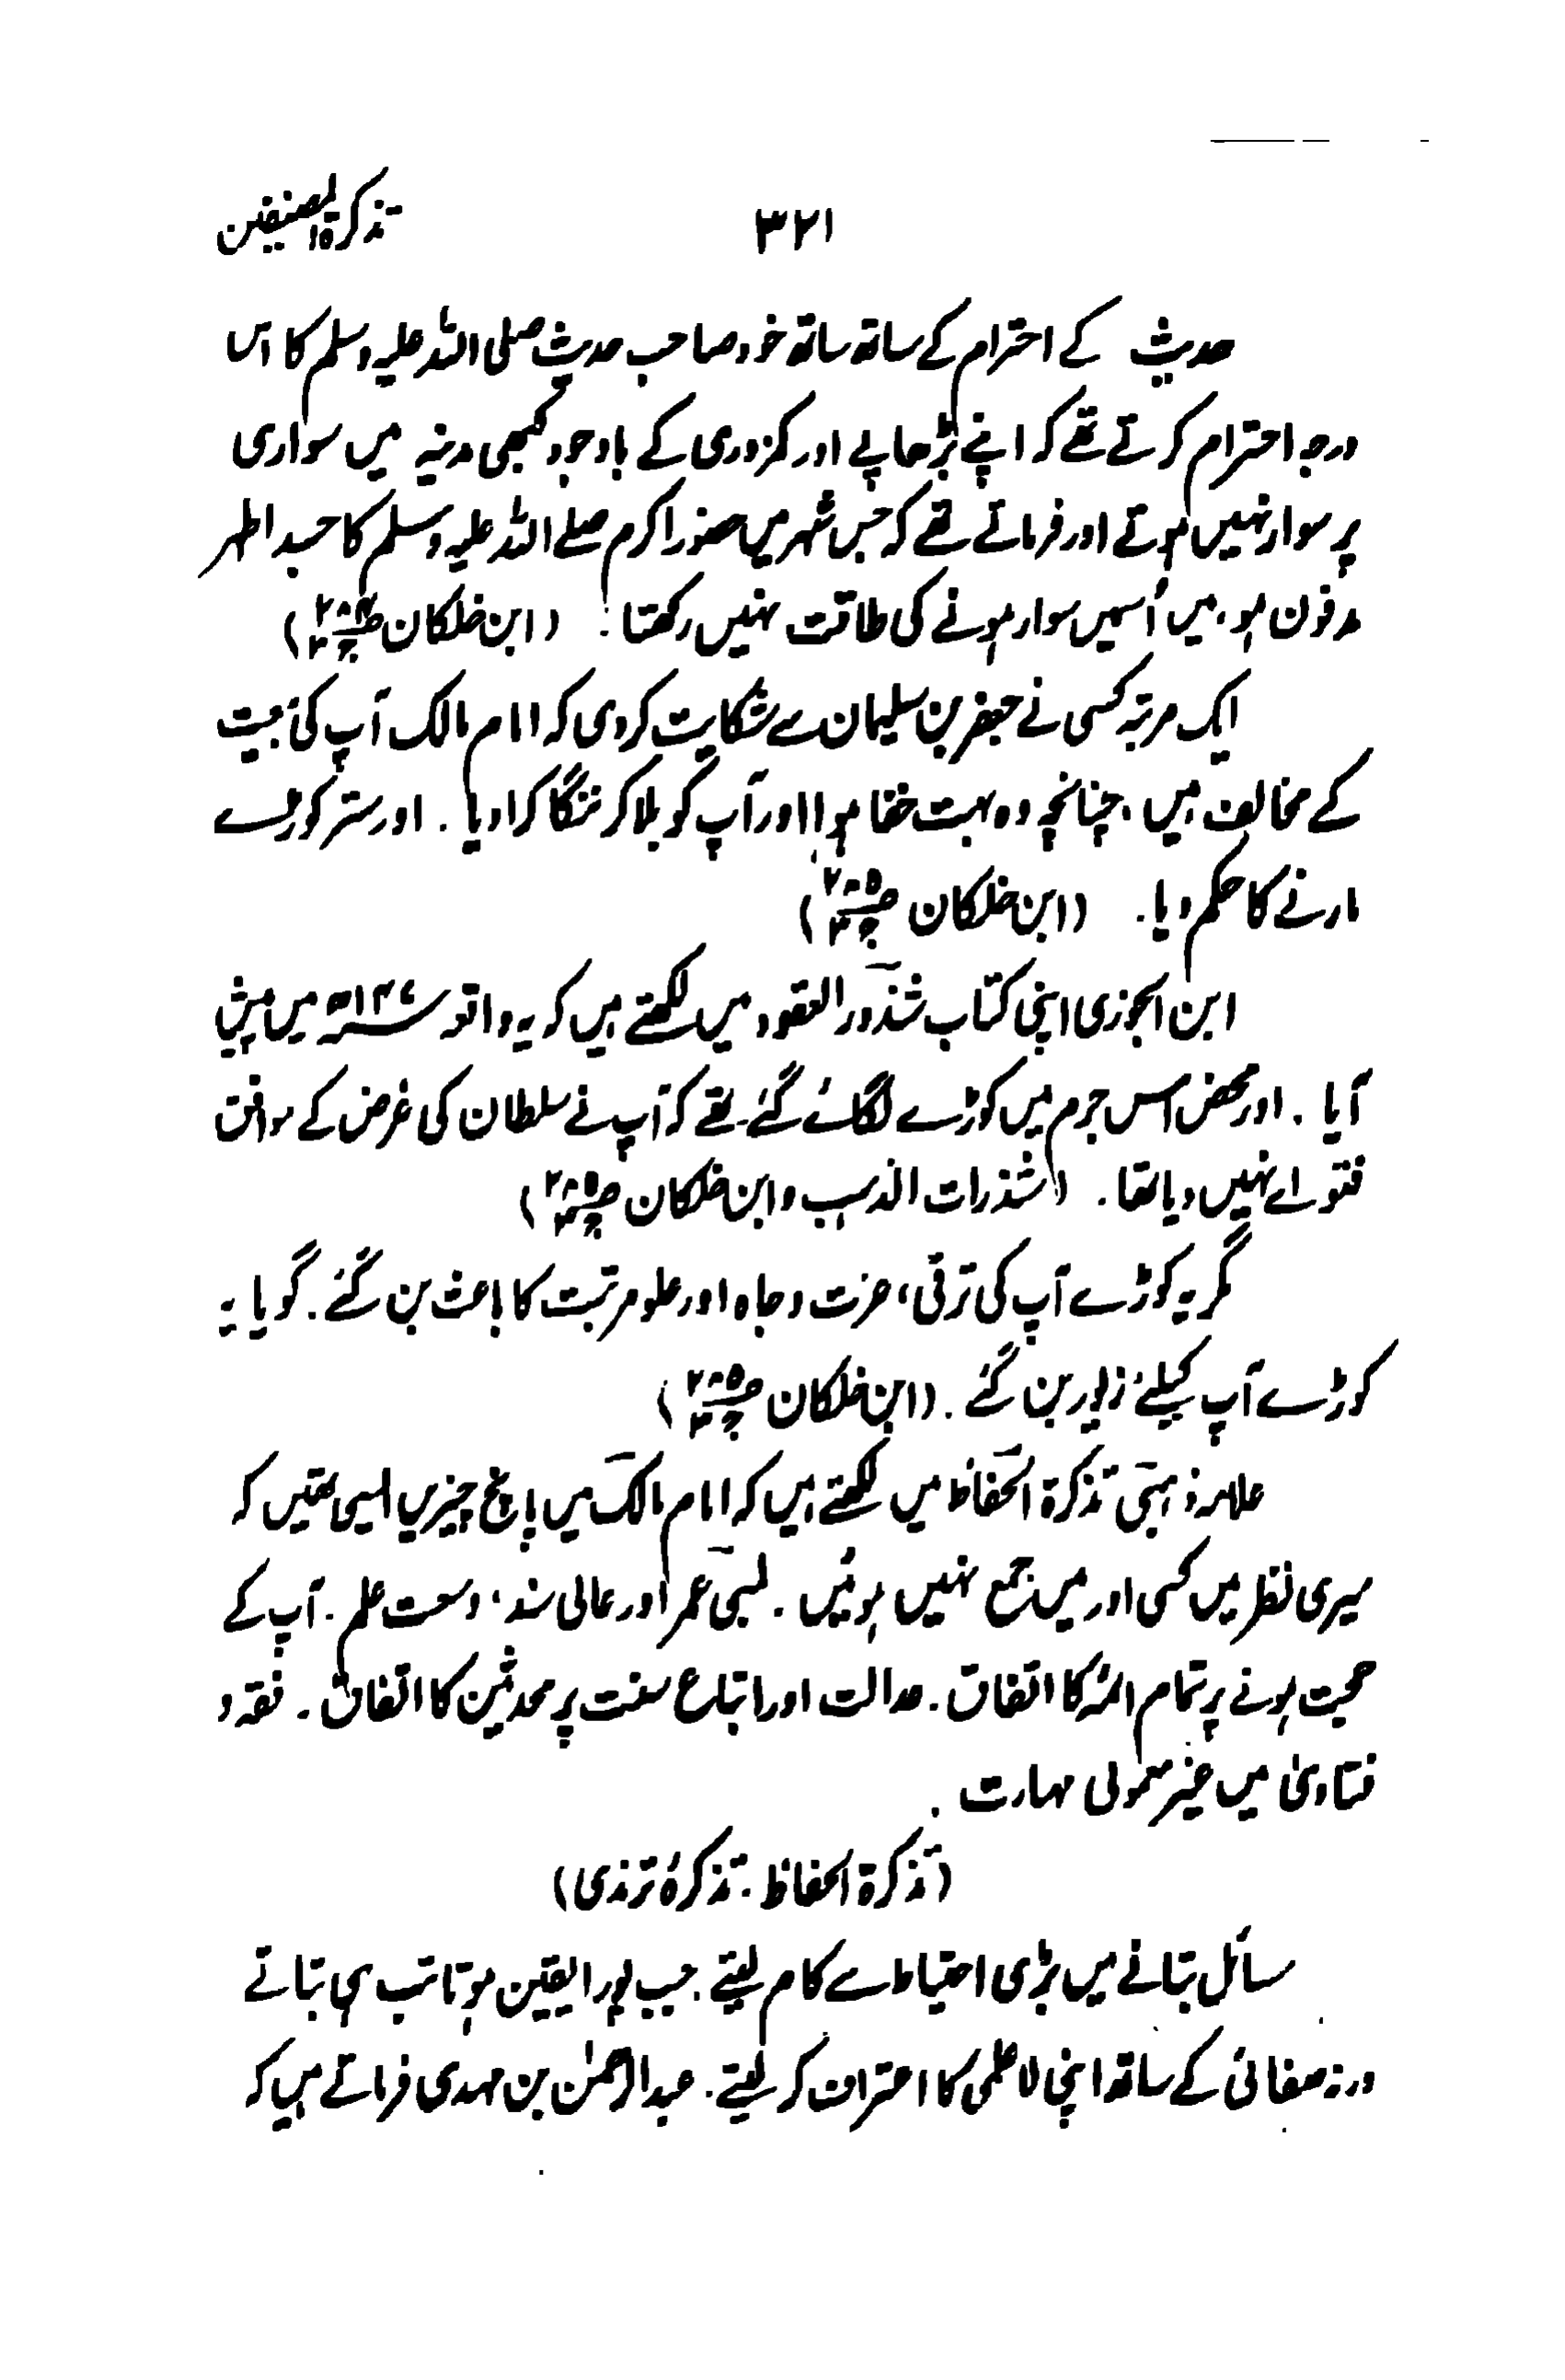 تذکرۃ المصنفین
۳۲۱
حدیث کے احترام کے ساتھ ساتھ خود صاحب حدیث صلی اللہ علیہ وسلم کا اس
درجہ احترام کرتے تھے کہ اپنے بڑھاپے اور کمزوری کے باوجود کبھی مدینہ میں سواری
پر سوار نہیں ہوتے اور فرماتے تھے کہ جس شہر میں حضور اکرم صلے اللہ علیہ وسلم کا جسد اطہر
مدفون ہو، میں اُسمیں سوار ہونے کی طاقت نہیں رکھتا! (ابن خلکان)
ایک مرتبہ کسی نے جعفر بن سلیمان سے شکایت کردی کہ امام مالک آپ کی بیعت
کے مخالف ہیں، چنانچہ وہ بہت خفا ہوا اور آپ کو بلا کر ننگا کرا دیا. اور ستر کوڑے
مارنے کا حکم دیا. (ابن خلکان)
ابن الجوزی اپنی کتاب شذور العقود میں لکھتے ہیں کہ یہ واقعہ ۱۴۷ھ میں پیش
آیا. اور محض اس جرم میں کوڑے لگائے گئے تھے کہ آپ نے سلطان کی غرض کے موافق
فتوےٰ نہیں دیا تھا. (شذرات الذہب و ابن خلکان)
مگر یہ کوڑے آپ کی ترقی، عزت و جاہ اور علو مرتبت کا باعث بن گئے. گویا یہ
کوڑے آپ کیلئے زیور بن گئے. (ابن خلکان)
علامہ ذہبی تذکرۃ الحفاظ میں لکھتے ہیں کہ امام مالک میں پانچ چیزیں ایسی تھیں کہ
میری نظر میں کسی اور میں جمع نہیں ہوئیں. لمبی عمر اور عالی سند، وسعت علم. آپ کے
حجت ہونے پر تمام ائمہ کا اتفاق. عدالت اور اتباع سنت پر محدثین کا اتفاق. فقہ و
فتاویٰ میں غیر معمولی مہارت.
(تذکرۃ الحفاظ. تذکرۂ ترمذی)
مسائل بتانے میں بڑی احتیاط سے کام لیتے. جب پورا یقین ہوتا تب ہی بتاتے
ورنہ صفائی کے ساتھ اپنی لاعلمی کا اعتراف کر لیتے. عبدالرحمٰن بن مہدی فرماتے ہیں کہ